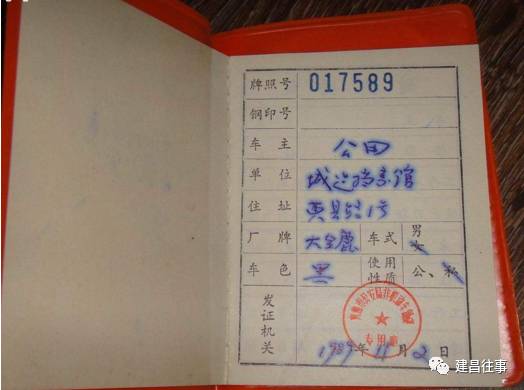 牌照号 017589
钢印号
车主 公田
单位 城建档案馆
住址
厂牌 大金鹿 车式 男 女
车色 黑 使用性质 公、私
发证机关
1989年11月2日
建昌往事